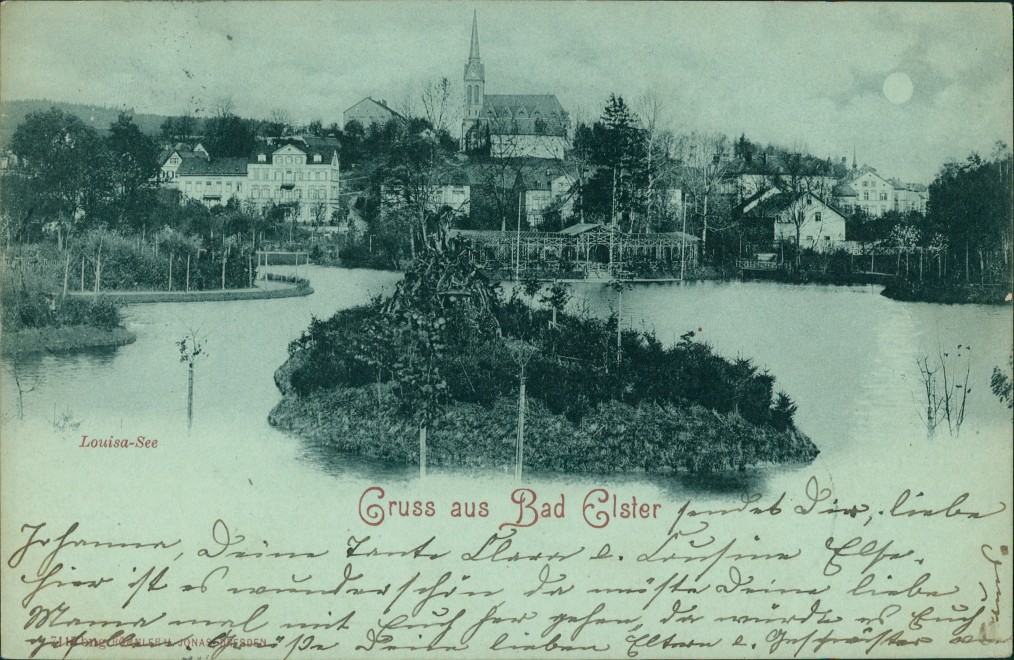 Louisa-See
Gruss aus Bad Elster
sendet Dir, liebe
Johanna, Deine Tante Clara u. Cousine Else.
Hier ist es wunderschön da müßte Deine liebe
Mama mal mit Euch her gehen, da würde es Euch
Grüße Deine lieben Eltern u. Geschwister von
RÖMMLER U. JONAS, DRESDEN